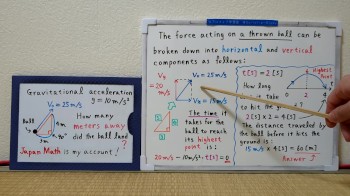 Gravitational acceleration
V₀ = 25 m/s
g = 10 m/s²
ball
How many
meters away
did the ball land
?
3m
4m
90°
Japan Math is my account!
The force acting on a thrown ball can
be broken down into horizontal and vertical
components as follows:
Vy
= 20
m/s
V₀ = 25 m/s
= 15 m/s
The time it
takes for the
ball to reach
its highest
point is:
20 m/s - 10 m/s² · t[s] = 0
t[s] = 2 [s]
highest
point
How long
take
to hit the
2[s] x 2 = 4 [s]
The distance traveled
by the ball before it hits the
ground is:
15 m/s x 4[s] = 60 [m]
Answer